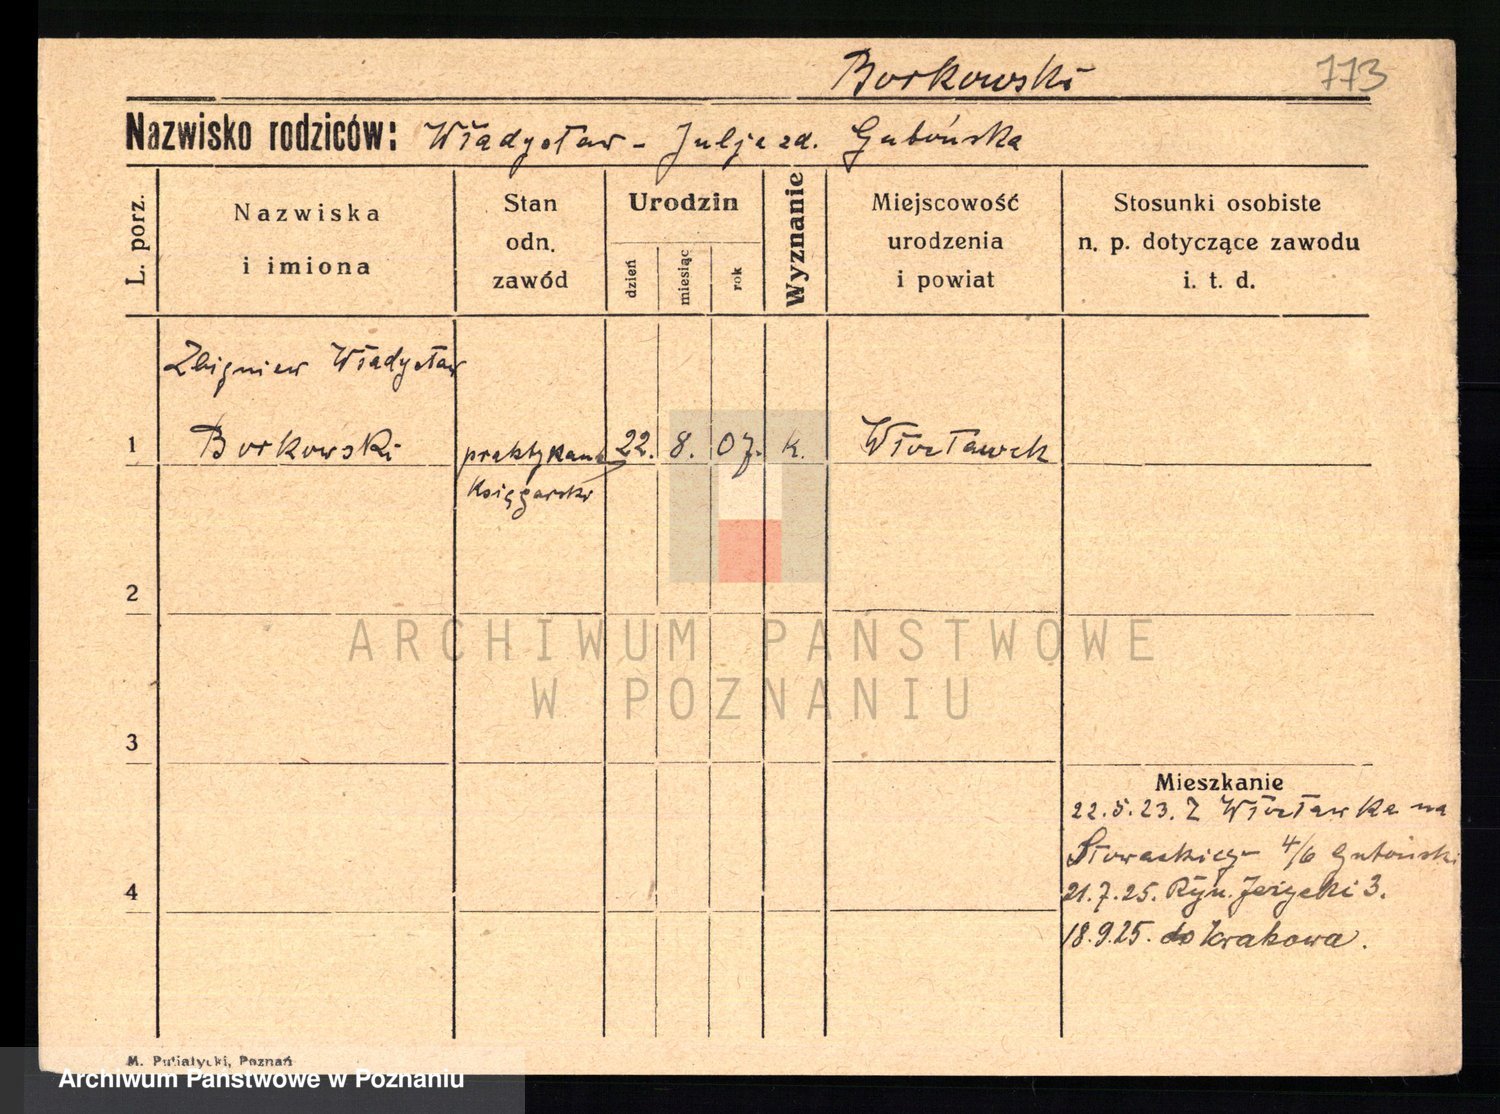 Borkowski 773
Nazwisko rodziców: Władysław - Julja zd. Gubońska
L. porz.
Nazwiska
i imiona
Stan
odn.
zawód
Urodzin
dzień
miesiąc
rok
Wyznanie
Miejscowość
urodzenia
i powiat
Stosunki osobiste
n. p. dotyczące zawodu
i. t. d.
Zbigniew Władysław
1 Borkowski praktykant 22. 8. 07. k. Włocławek
księgarski
2
ARCHIWUM PAŃSTWOWE
W POZNANIU
3
Mieszkanie
22.5.23. Z Włocławka na
Słowackiego 4/6 Guboński
4
21.7.25. Ryn. Jeżycki 3.
18.9.25. do Krakowa.
M. Putiatycki, Poznań
Archiwum Państwowe w Poznaniu